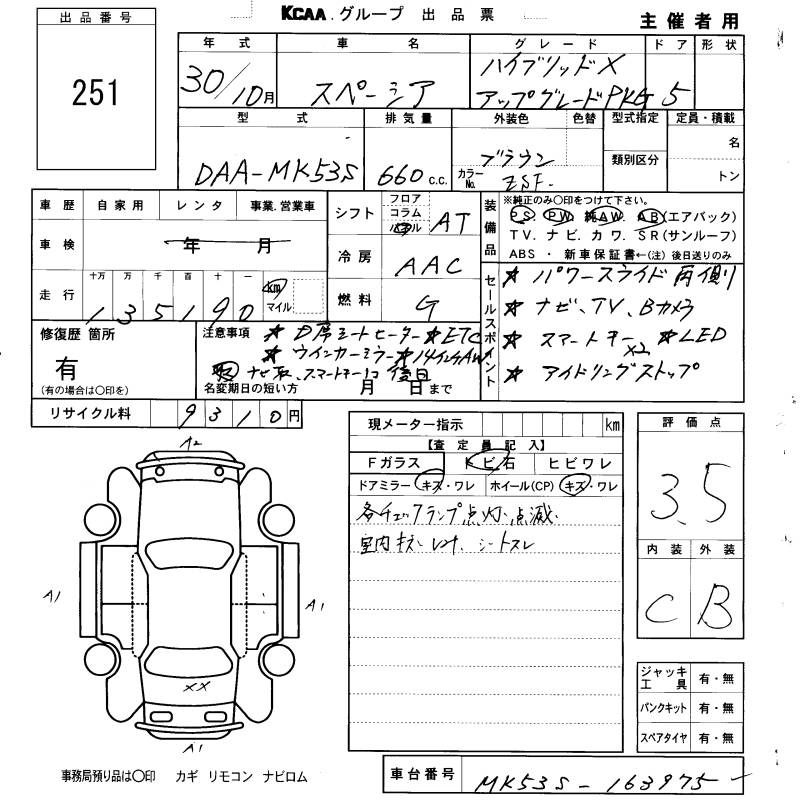 KCAA.グループ 出品票
主催者用
出品番号
251
年式 車名 グレード ドア 形状
30/10月 スペーシア ハイブリッドX
アップグレードPKG 5
型式 排気量 外装色 色替 型式指定 定員・積載
DAA-MK53S 660c.c. ブラウン 名
カラーNo. ZSF. 類別区分 トン
車歴 自家用 レンタ 事業.営業車
車検 年 月
十万 万 千 百 十 一
走行 135190 km マイル
シフト フロア コラム AT
冷房 AAC
燃料 G
装備品 ※純正のみ○印をつけて下さい。
PS PW 純AW. AB(エアバック)
TV. ナビ. カワ. SR(サンルーフ)
ABS ・ 新車保証書←(注) 後日送りのみ
セールスポイント ★ パワースライド両側リ
★ ナビ、TV、Bカメラ
★ スマートキーx2 ★LED
★ アイドリングストップ
修復歴 箇所
有
(有の場合は○印を)
注意事項 ★D席シートヒーター ★ETC
★ウインカーミラー ★14インチAW
ナビ取、スマートキー1コ 後日
名変期日の短い方 月 日まで
リサイクル料 9310円
現メーター指示 km
【査定員記入】
Fガラス トビ石 ヒビワレ
ドアミラー キズ・ワレ ホイール(CP) キズ・ワレ
各チェックランプ点灯.点滅.
室内キズ・ヨゴレ. シートスレ
評価点
3.5
内装 外装
C B
A2
A1 A1
XX
A1
ジャッキ工具 有・無
パンクキット 有・無
スペアタイヤ 有・無
事務局預り品は○印 カギ リモコン ナビロム
車台番号 MK53S-163975